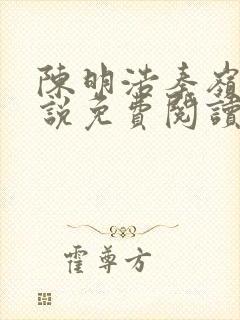 陳明浩秦嶺
說免費閱讀
霍尊方